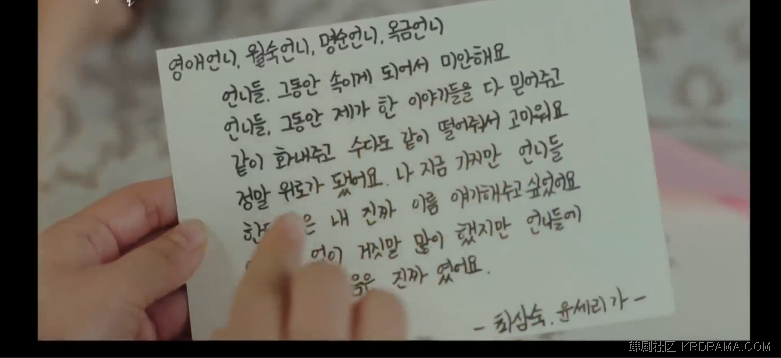 영애언니, 월숙언니, 명순언니, 옥금언니
언니들. 그동안 속이게 되어서 미안해요
언니들, 그동안 제가 한 이야기들을 다 믿어주고
같이 화내주고 수다도 같이 떨어줘서 고마워요
정말 위로가 됐어요. 나 지금 가지만 언니들
은 내 진짜 이름 얘기해주고 싶었어요
없이 거짓말 많이 했지만 언니들에
진짜 였어요.
- 최삼숙. 윤세리가 -
韩剧社区 KRDRAMA.COM